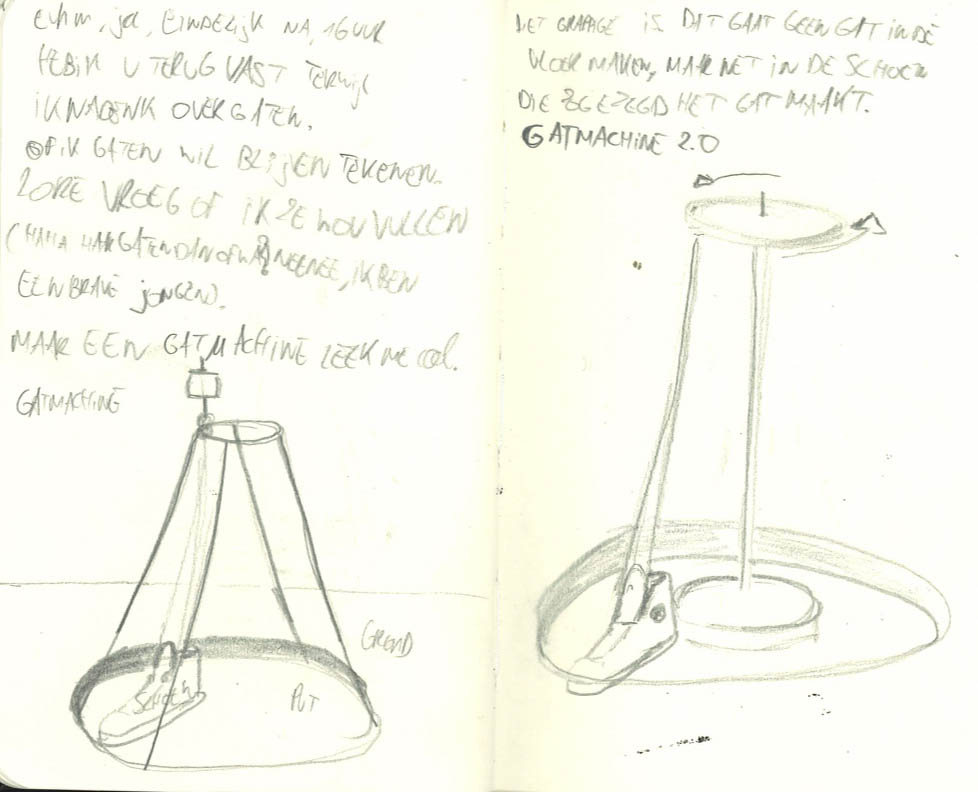 EUHM, ja, EINDELijk NA 16 UUR
HEB iK U TERUG VAST TERWijL
iK NADENK OVER GATEN.
OF iK GATEN WiL BLijVEN TEKENEN.
LORE VROEG OF iK ZE WOU VULLEN
(HAHA HAAR GATEN DAN OF WA? NEENEE, iK BEN
EEN BRAVE jONGEN).
MAAR EEN GATMACHiNE LEEK ME cool.
GATMACHiNE
GROND
SCHOEN
PUT
HET GRAPPiGE iS DAT GAAT GEEN GAT iN DE
VLOER MAKEN, MAAR NET iN DE SCHOEN
DiE ZOGEZEGD HET GAT MAAKT.
GATMACHiNE 2.0